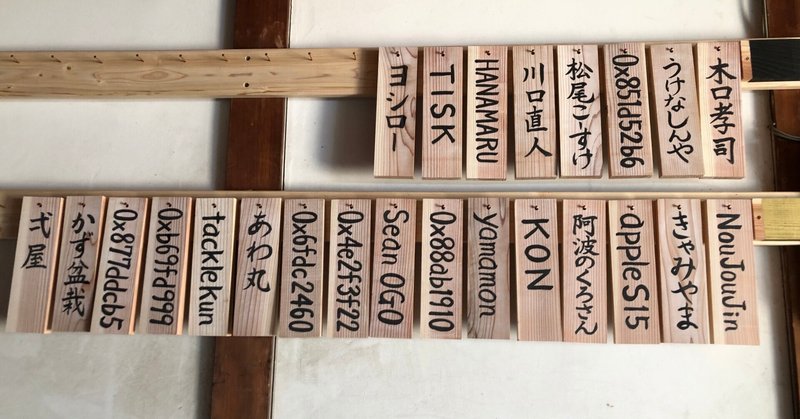 木口孝司
うけなしんや
0x851d52b6
松尾こーすけ
川口直人
HANAMARU
TISK
ヨシロー
NouJouJin
きゃみやま
appleS15
阿波のくろさん
KON
yamamon
0x88ab1910
Sean OGO
0x4e2f3f22
0x6fdc2460
あわ丸
tacklekun
0xb69fd999
0x877ddcb5
かず盆栽
弌屋